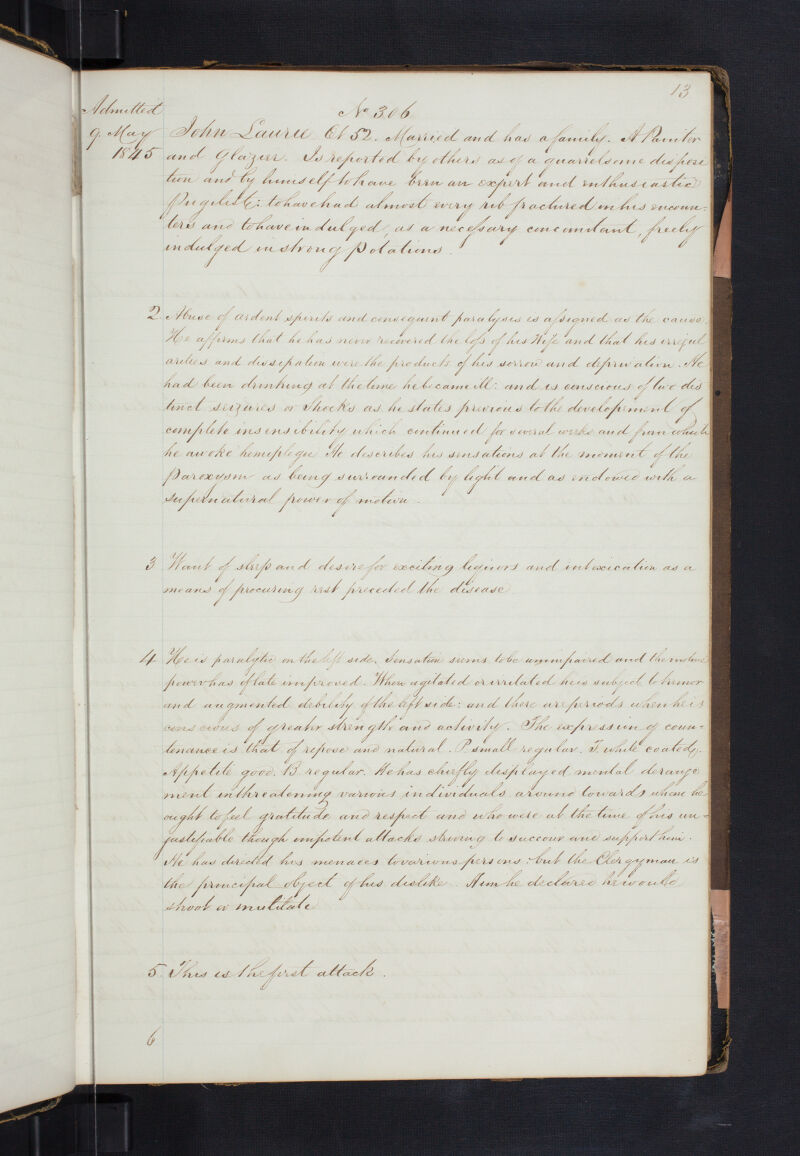 13
Admitted
9. May
1845
No 306
John Laurie Et 52. Married and has a family. A Painter
and Glazier. Is reported by others as of a quarrelsome disposi
tion and by himself to have been an expert and enthusiastic
Pugilist: to have had almost every rib fractured in his encoun-
ters and to have indulged, as a necessary concomitant, freely
indulged in strong potations.
2 Abuse of ardent spirits and consequent paralysis is assigned as the cause.
He affirms that he has never recovered the loss of his Wife and that his irregul
arities and dissipation were the products of his sorrow and deprivation. He
had been drinking at the time he became ill: and is conscious of two dis
tinct seizures or Shocks as he states previous to the development of
complete insensibility which continued for several weeks and from which
he awoke hemiplegic He describes his sensations at the moment of the
Paroxysm as being surrounded by light and as endowed with a
supernatural power of motion.
3 Want of sleep and desire for exciting liquors and intoxication as a
means of procuring rest preceded the disease
4 He is paralytic on the left side. Sensation seems to be unimpaired and the motive
power has of late improved. When agitated or irritated he is subject to tremor
and augmented debility of the left side: and there are periods when he is
conscious of greater strength and activity. The expression of coun-
tenance is that of repose and natural. P. small regular. T. white coated.
Appetite good. B. regular. He has chiefly displayed mental derange
ment in threatening various individuals around towards whom he
ought to feel gratitude and respect and who were at the time of his un-
justifiable though impotent attacks striving to succour and support him.
He has directed his menaces to various persons: but the Clergyman is
the principal object of his dislike. Him he declared he would
shoot or mutilate
5 This is the first attack.
6